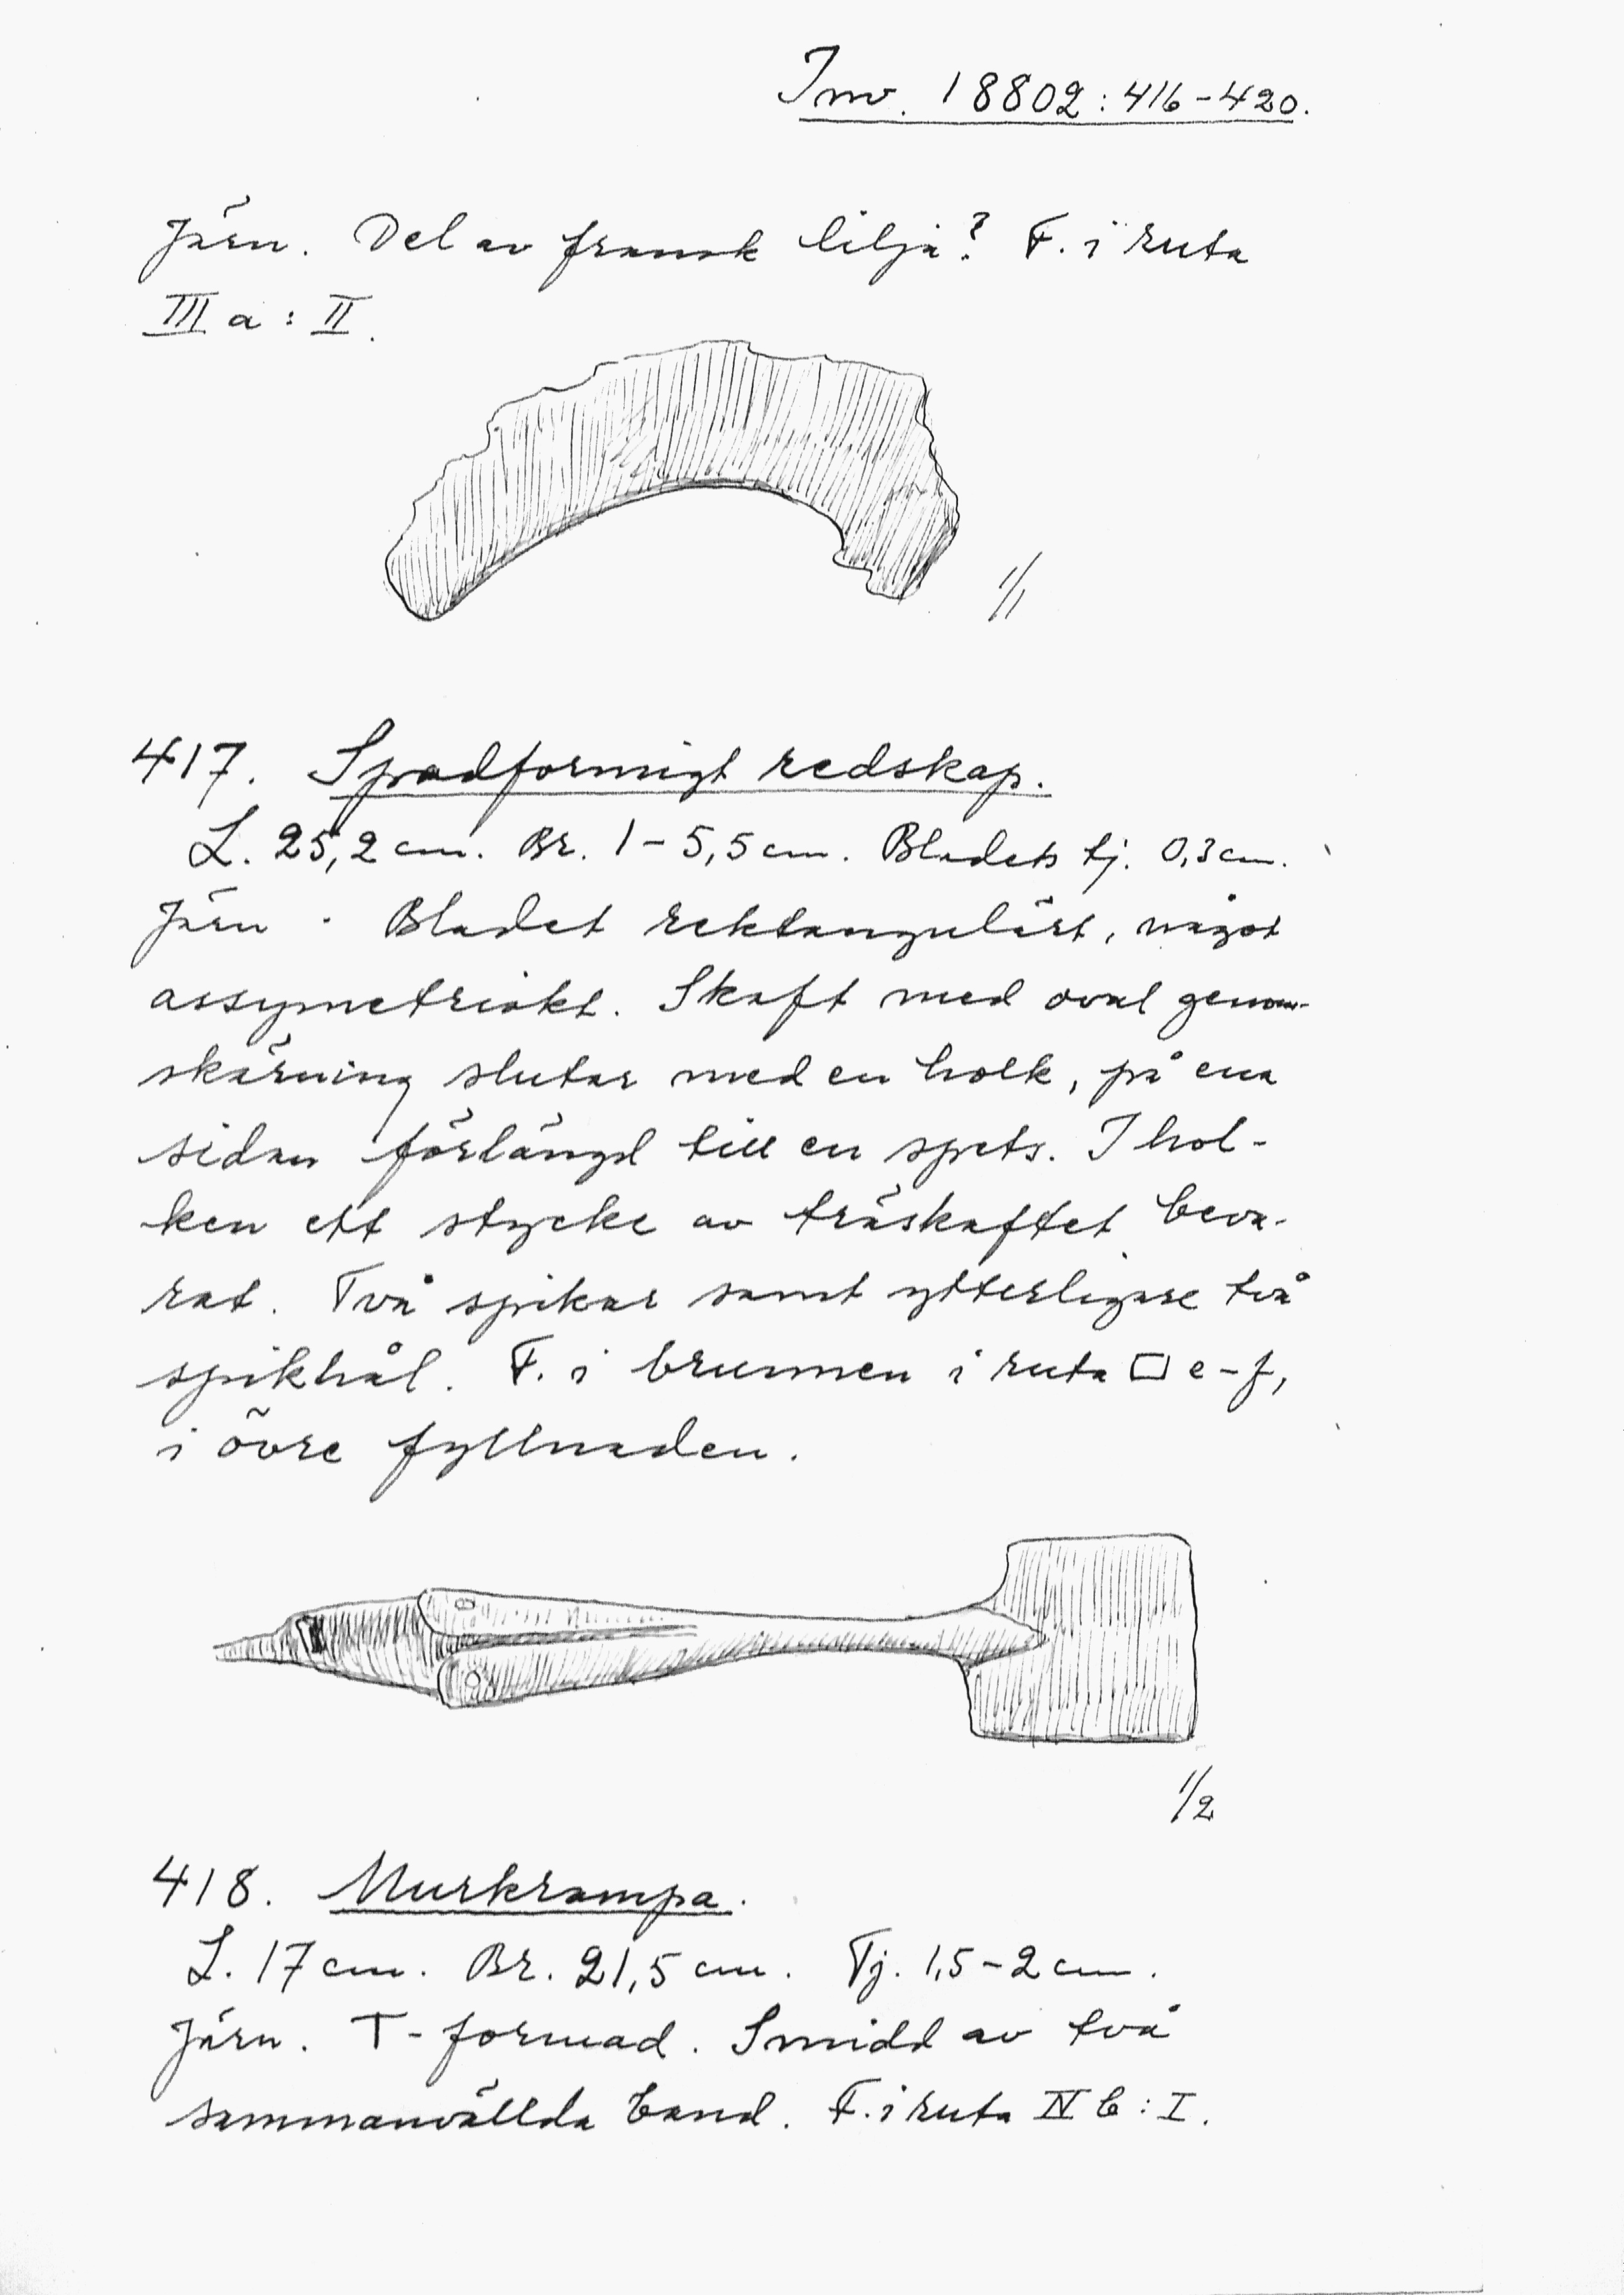 Inv. 18802:416-420.
Järn. Del av fransk lilja? F. i ruta
III a : II.
1/1
417. Spadformigt redskap.
L. 25,2 cm. Br. 1-5,5 cm. Bladets tj. 0,3 cm.
Järn. Bladet rektangulärt, något
assymetriskt. Skaft med oval genom-
skärning slutar med en holk, på ena
sidan förlängd till en spets. I hol-
ken ett stycke av träskaftet beva-
rat. Två spikar samt ytterligare två
spikhål. F. i brunnen i ruta □ e-f,
i övre fyllnaden.
1/2
418. Murkrampa.
L. 17 cm. Br. 21,5 cm. Tj. 1,5-2 cm.
Järn. T-formad. Smidd av två
sammanvällda band. F. i ruta IV b : I.